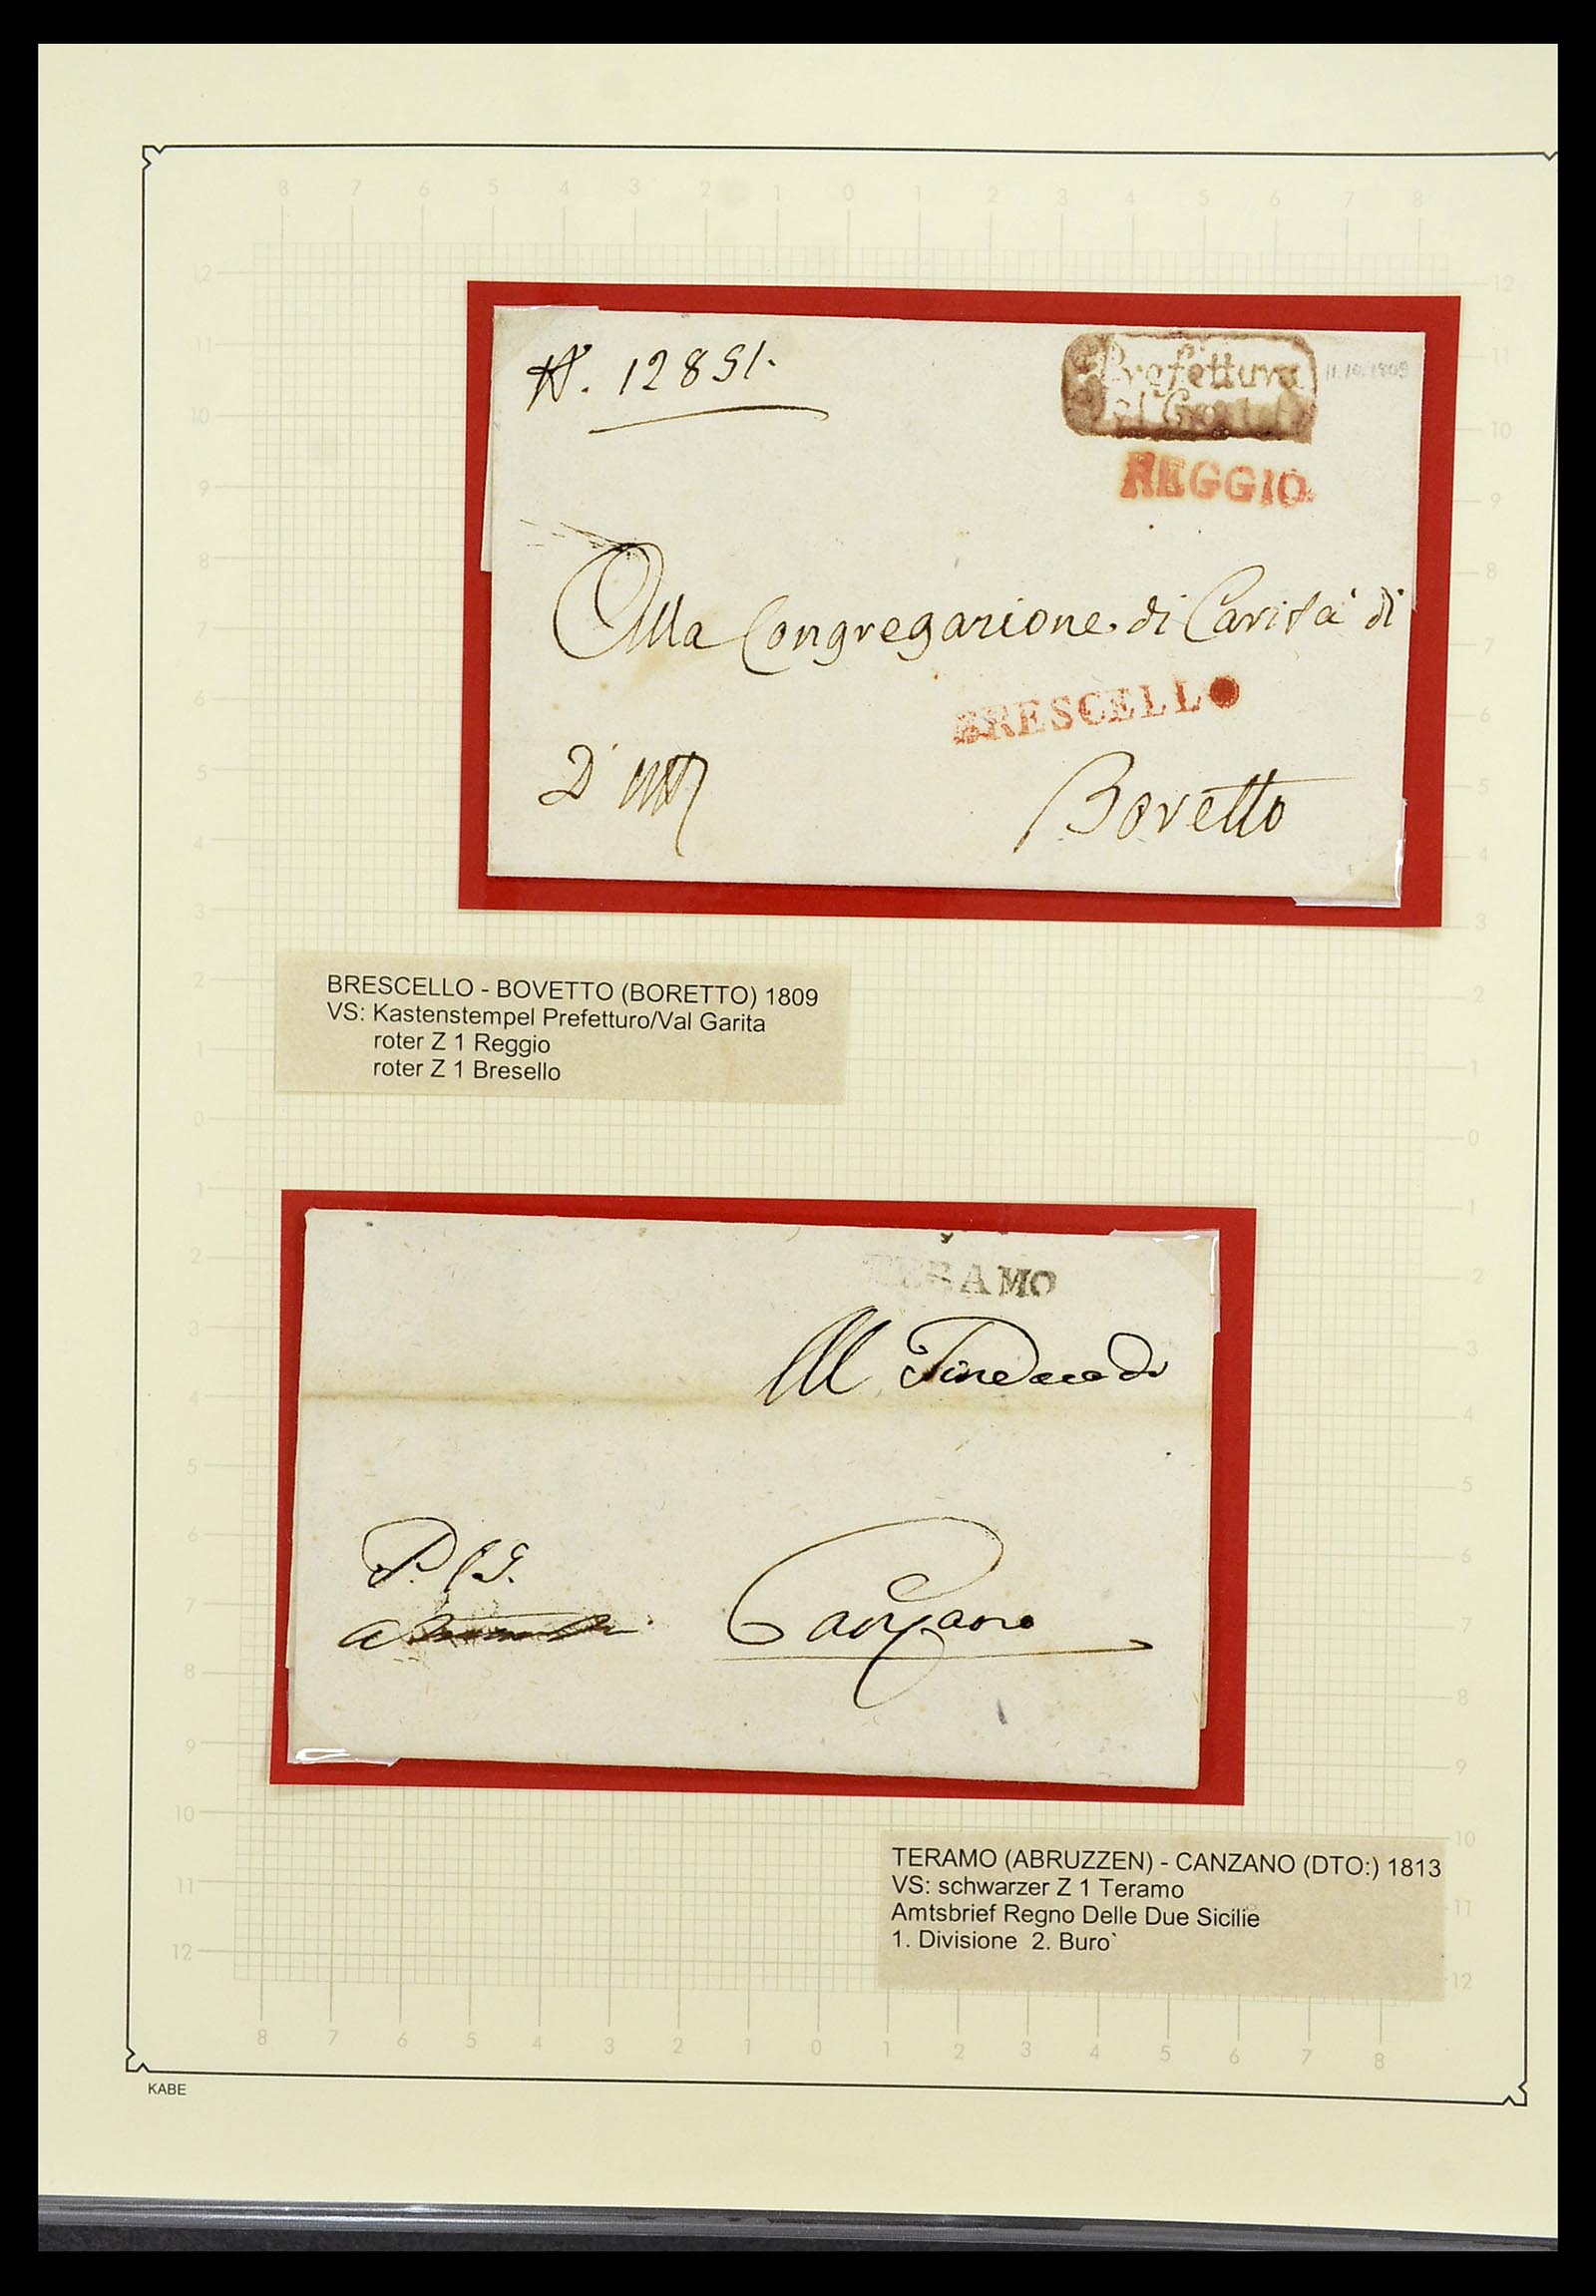 N. 12851.
Prefettura
11.10.1809
REGGIO
Alla Congregazione di Carità di
BRESCELLO
Boretto
BRESCELLO - BOVETTO (BORETTO) 1809
VS: Kastenstempel Prefetturo/Val Garita
roter Z 1 Reggio
roter Z 1 Bresello
TERAMO
Al Sindaco di
Canzano
TERAMO (ABRUZZEN) - CANZANO (DTO:) 1813
VS: schwarzer Z 1 Teramo
Amtsbrief Regno Delle Due Sicilie
1. Divisione 2. Buro`
KABE